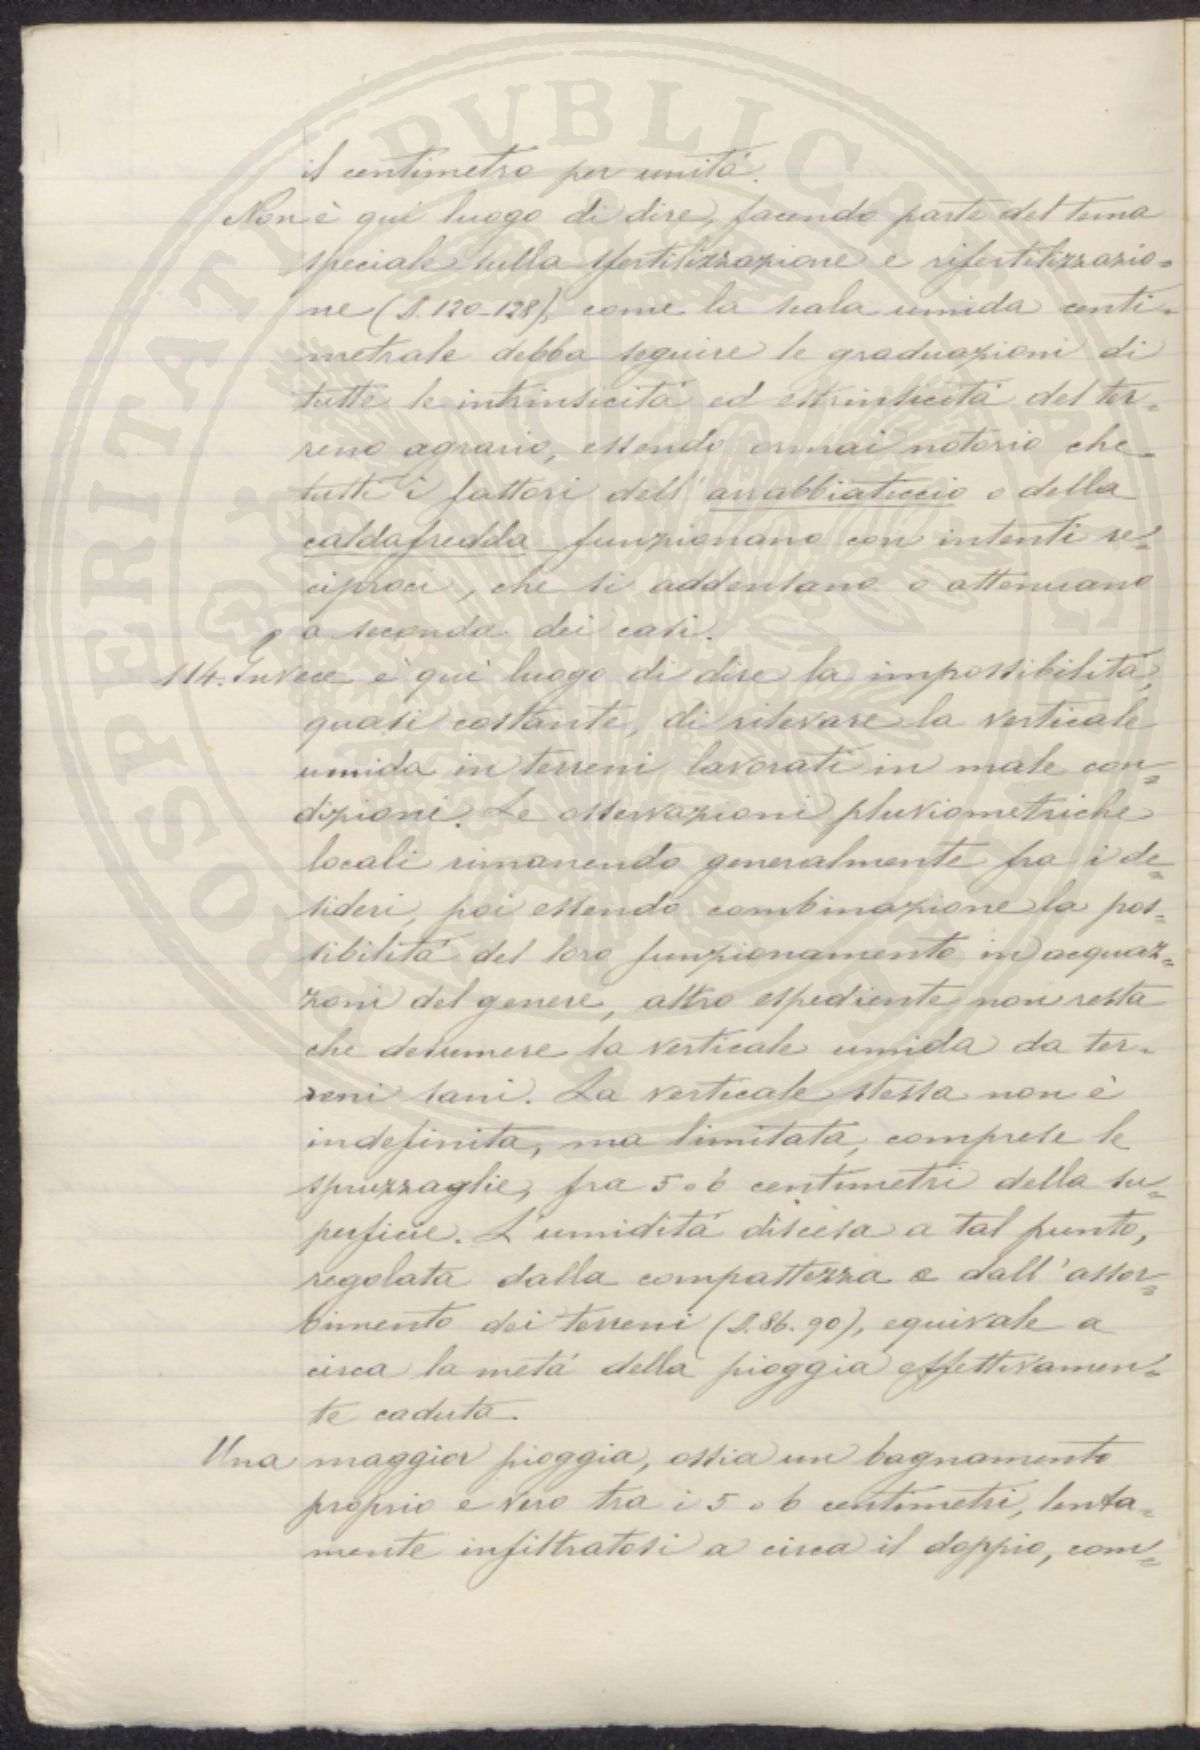 il centimetro per unità.
Non è qui luogo di dire, facendo parte del tema
speciale sulla sfertilizzazione e rifertilizzazio=
ne (§. 120-128), come la scala umida centi=
metrale debba seguire le graduazioni di
tutte le intrinsicità ed estrinsicità del ter=
reno agrario, essendo ormai notorio che
tutti i fattori dell'arrabbiaticcio o della
caldafredda funzionano con intenti re=
ciproci, che si addensano o attenuano
a seconda dei casi.
114. Invece è qui luogo di dire la impossibilità,
quasi costante, di rilevare la verticale
umida in terreni lavorati in male con=
dizioni. Le osservazioni pluviometriche
locali rimanendo generalmente fra i de=
sideri, poi essendo combinazione la pos=
sibilità del loro funzionamento in acquaz=
zoni del genere, altro espediente non resta
che desumere la verticale umida da ter=
reni sani. La verticale stessa non è
indefinita, ma limitata, comprese le
spruzzaglie, fra 5 o 6 centimetri della su=
perficie. L'umidità discesa a tal punto,
regolata dalla compattezza e dall'assor=
bimento dei terreni (§. 86. 90), equivale a
circa la metà della pioggia effettivamen=
te caduta.
Una maggior pioggia, ossia un bagnamento
proprio e vero tra i 5 o 6 centimetri, lenta=
mente infiltratosi a circa il doppio, com=
PROSPERITATI PUBLICAE